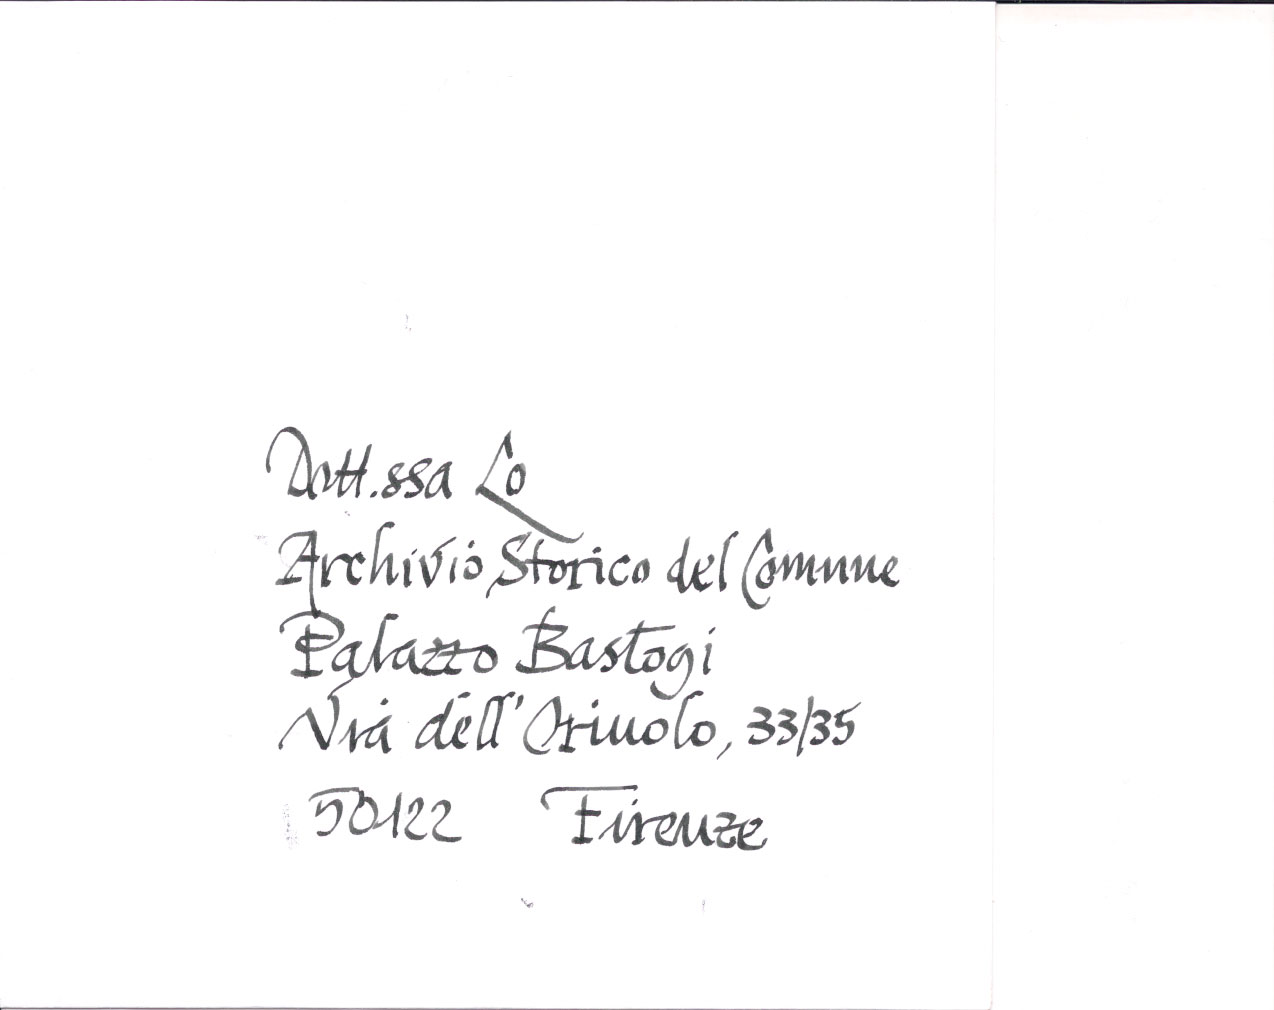 Dott.ssa Lo
Archivio Storico del Comune
Palazzo Bastogi
Via dell'Oriuolo, 33/35
50122 Firenze